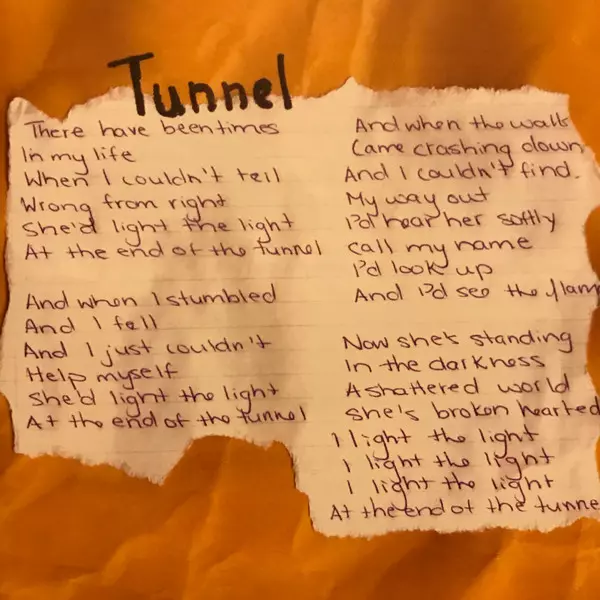 Tunnel
There have been times
In my life
When I couldn't tell
Wrong from right
She'd light the light
At the end of the tunnel
And when I stumbled
And I fell
And I just couldn't
Help myself
She'd light the light
At the end of the tunnel
And when the walls
Came crashing down
And I couldn't find.
My way out
I'd hear her softly
call my name
I'd look up
And I'd see the flam
Now she's standing
In the darkness
A shattered world
She's broken hearted
I light the light
I light the light
I light the light
At the end of the tunne